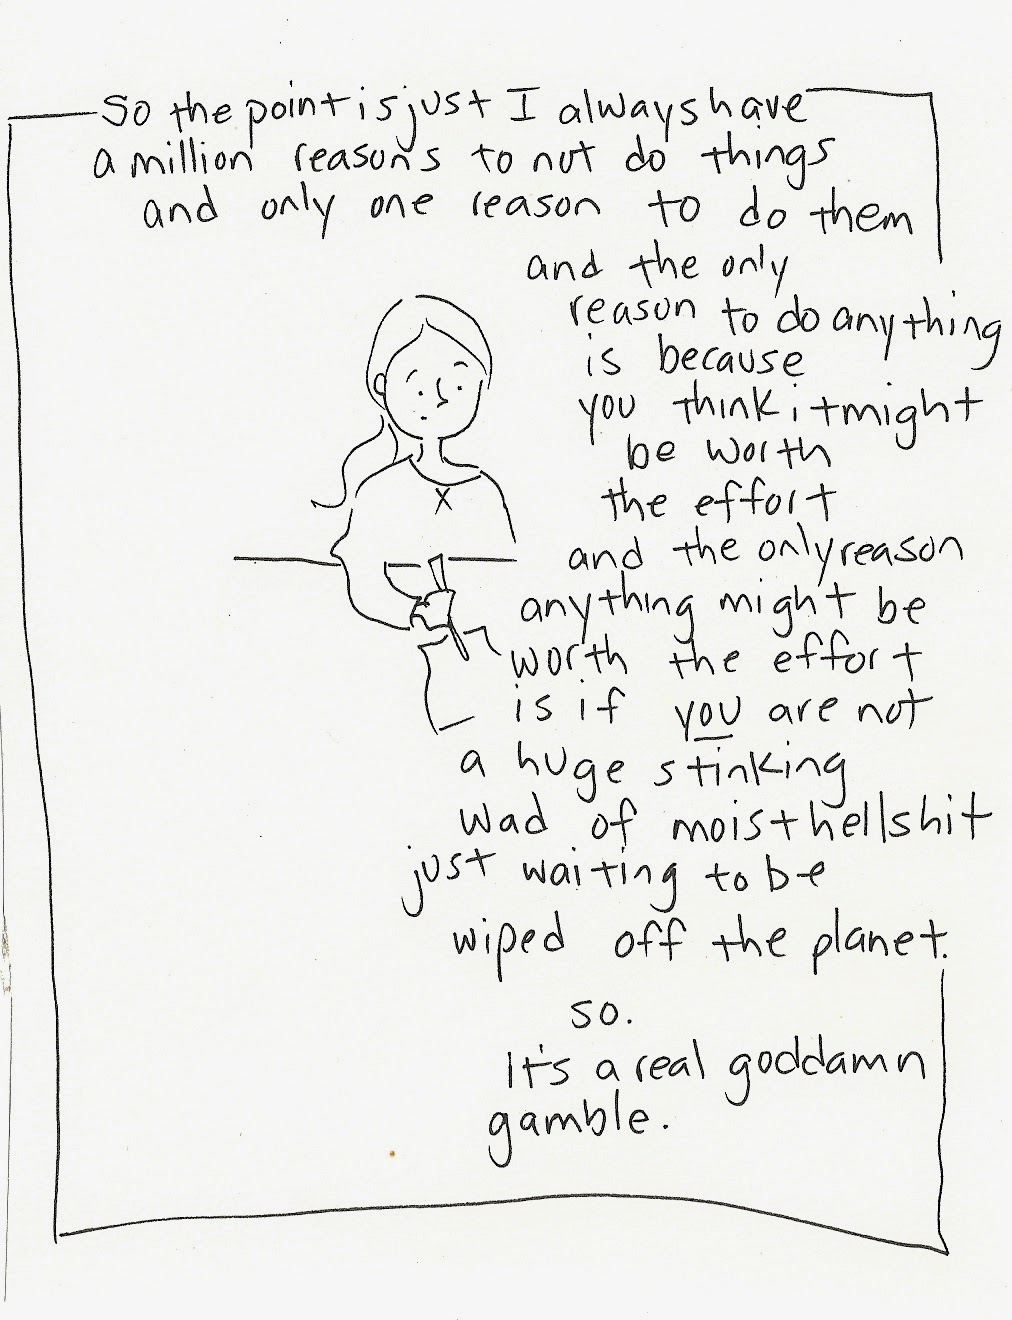 So the point is just I always have
a million reasons to not do things
and only one reason to do them
and the only
reason to do anything
is because
you think it might
be worth
the effort
and the only reason
anything might be
worth the effort
is if you are not
a huge stinking
wad of moist hellshit
just waiting to be
wiped off the planet.
so.
It's a real goddamn
gamble.